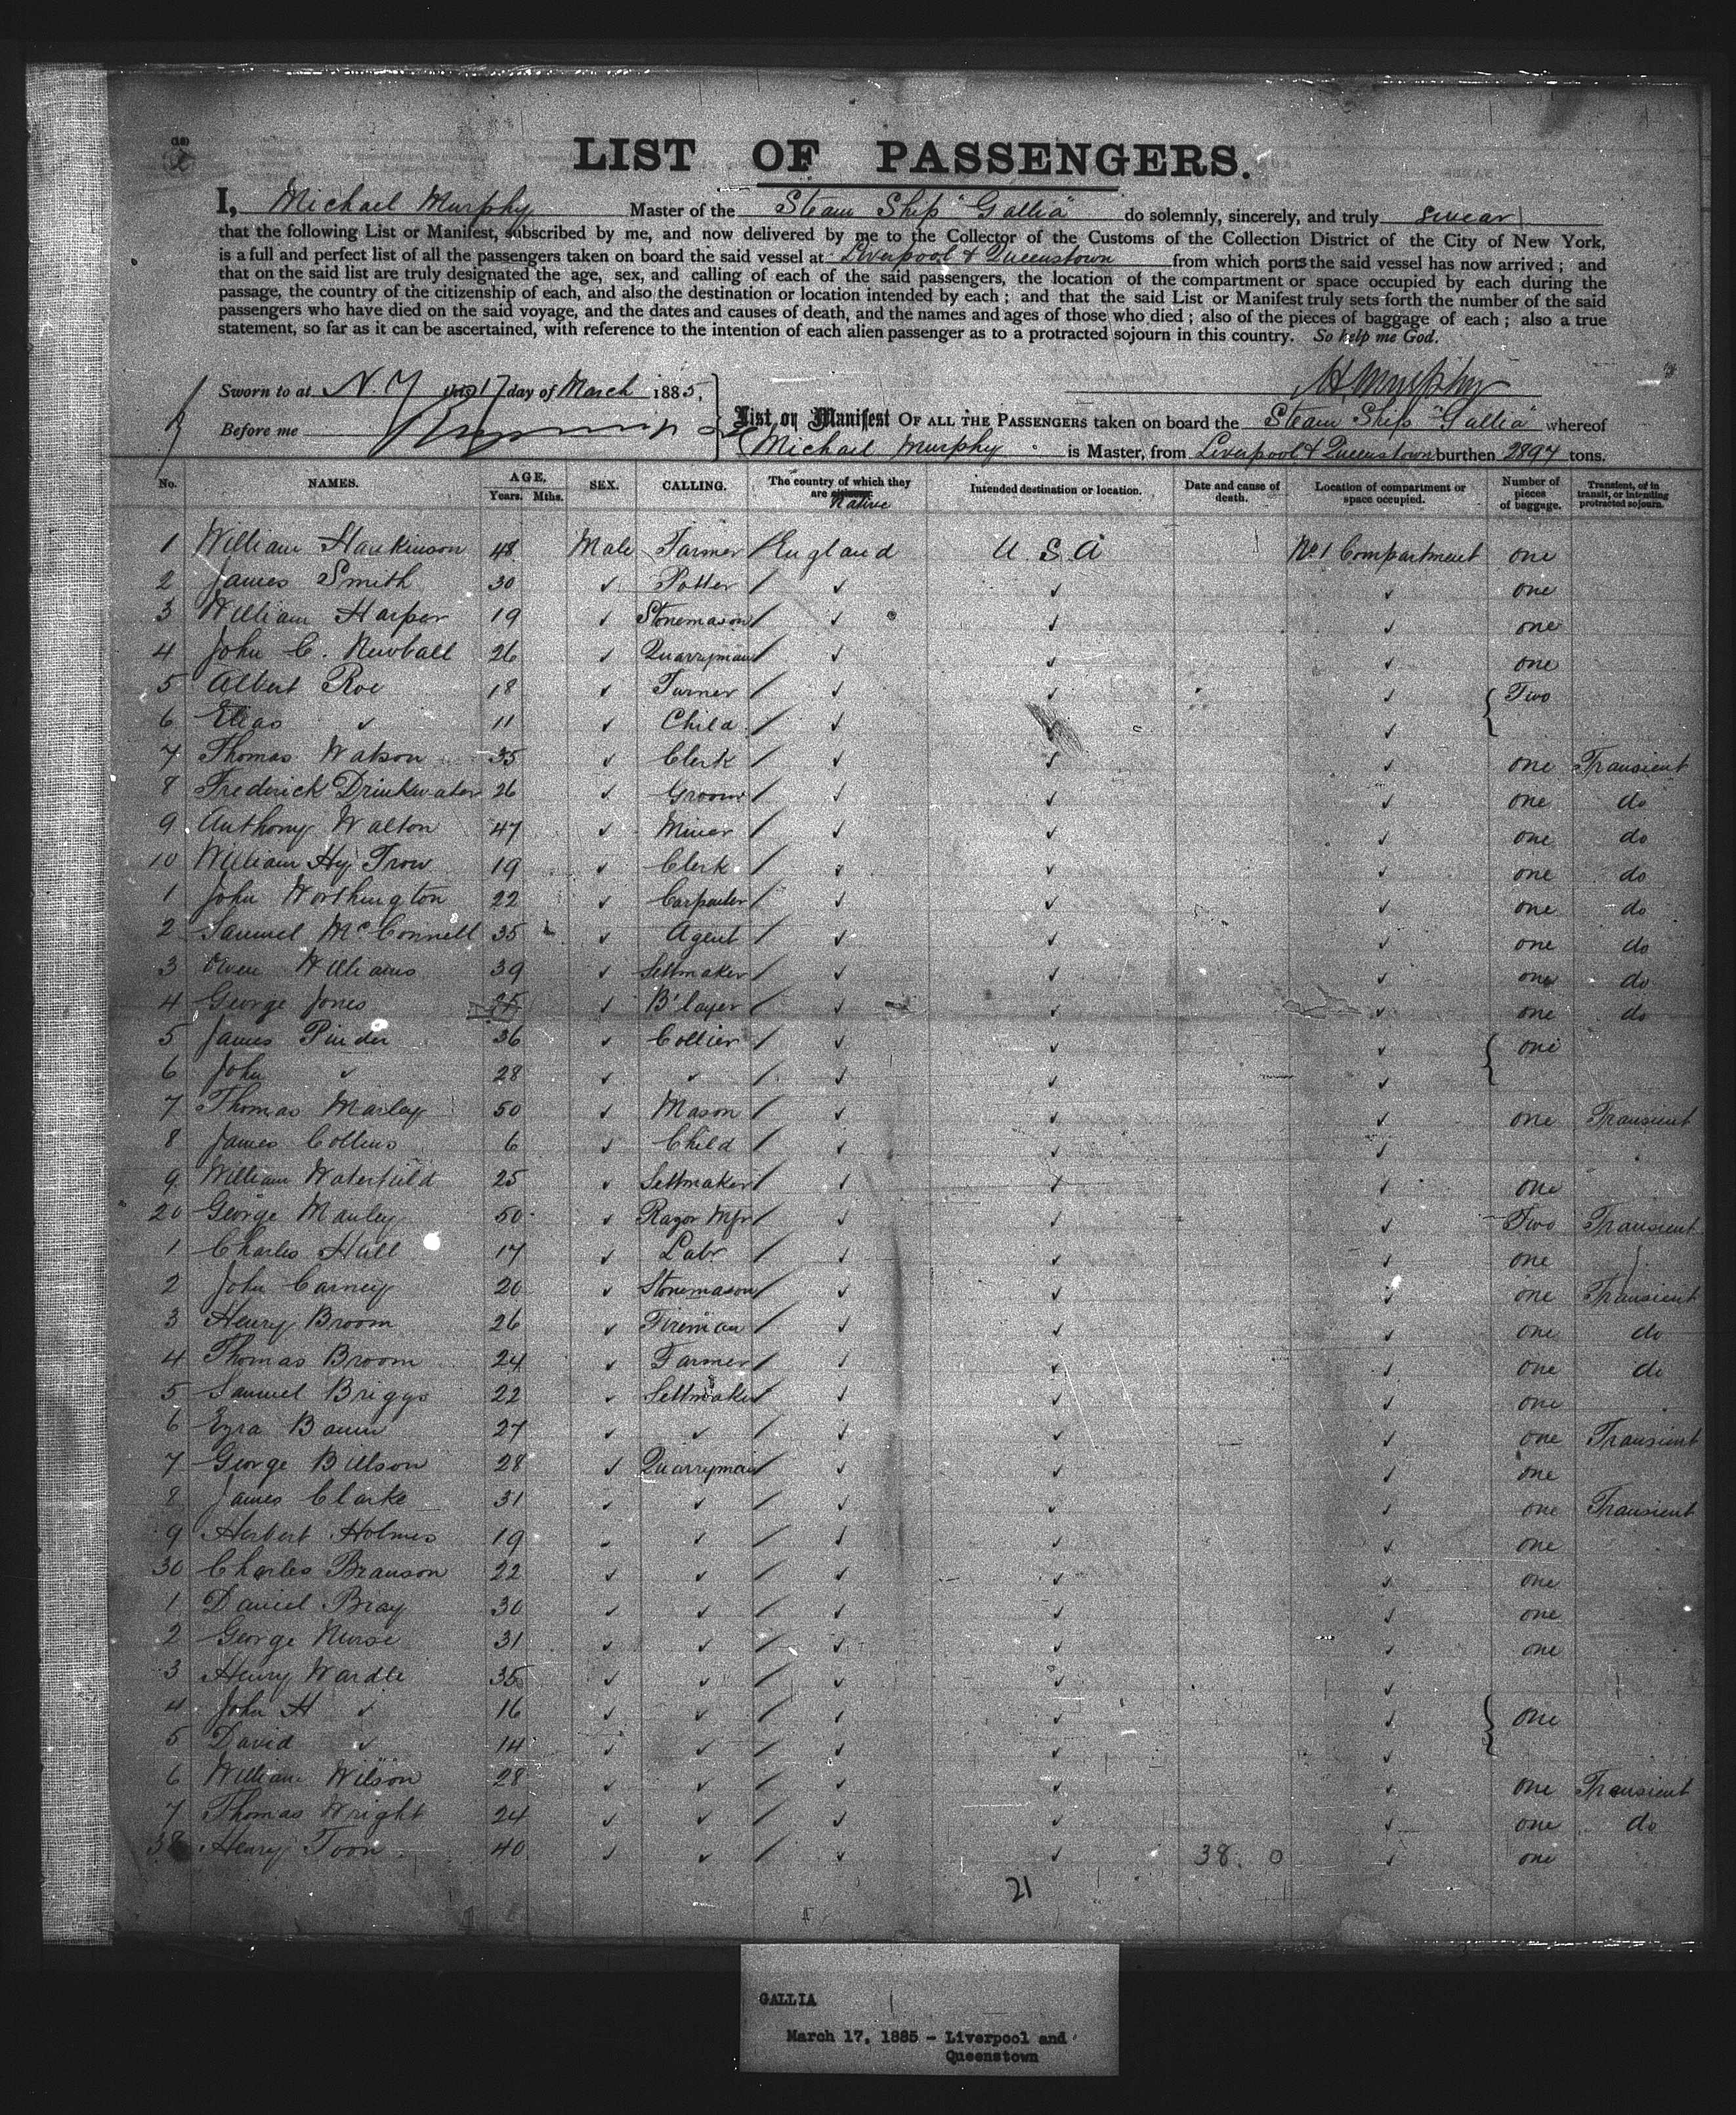 LIST OF PASSENGERS.
I, Michael Murphy Master of the Steam Ship "Gallia" do solemnly, sincerely, and truly swear
that the following List or Manifest, subscribed by me, and now delivered by me to the Collector of the Customs of the Collection District of the City of New York,
is a full and perfect list of all the passengers taken on board the said vessel at Liverpool & Queenstown from which ports the said vessel has now arrived ; and
that on the said list are truly designated the age, sex, and calling of each of the said passengers, the location of the compartment or space occupied by each during the
passage, the country of the citizenship of each, and also the destination or location intended by each ; and that the said List or Manifest truly sets forth the number of the said
passengers who have died on the said voyage, and the dates and causes of death, and the names and ages of those who died ; also of the pieces of baggage of each ; also a true
statement, so far as it can be ascertained, with reference to the intention of each alien passenger as to a protracted sojourn in this country. So help me God.
M Murphy
Sworn to at N.Y this 17 day of March 1885,
Before me
List or Manifest OF ALL THE PASSENGERS taken on board the Steam Ship "Gallia" whereof
Michael Murphy is Master, from Liverpool & Queenstown burthen 2897 tons.
No. NAMES. AGE. Years. Mths. SEX. CALLING. The country of which they are citizens. Native Intended destination or location. Date and cause of death. Location of compartment or space occupied. Number of pieces of baggage. Transient, or in transit, or intending protracted sojourn.
1 William Hankinson 48 Male Farmer / England U.S.A No 1 Compartment one
2 James Smith 30 ✓ Potter / ✓ ✓ ✓ one
3 William Harper 19 ✓ Stonemason / ✓ ✓ ✓ one
4 John C. Newball 26 ✓ Quarryman / ✓ ✓ ✓ one
5 Albert Roe 18 ✓ Turner / ✓ ✓ ✓ { Two
6 Elias ✓ 11 ✓ Child / ✓ ✓ ✓
7 Thomas Watson 35 ✓ Clerk / ✓ ✓ ✓ one Transient
8 Frederick Drinkwater 26 ✓ Groom / ✓ ✓ ✓ one do
9 Anthony Walton 47 ✓ Miner / ✓ ✓ ✓ one do
10 William Hy Trow 19 ✓ Clerk / ✓ ✓ ✓ one do
1 John Worthington 22 ✓ Carpenter / ✓ ✓ ✓ one do
2 Samuel McConnell 35 ✓ Agent / ✓ ✓ ✓ one do
3 Owen Williams 39 ✓ Settmaker / ✓ ✓ ✓ one do
4 George Jones ✓ B'layer / ✓ ✓ ✓ one do
5 James Pinder 36 ✓ Collier / ✓ ✓ ✓ { one
6 John ✓ 28 ✓ ✓ / ✓ ✓ ✓
7 Thomas Marlay 50 ✓ Mason / ✓ ✓ ✓ one Transient
8 James Collins 6 ✓ Child / ✓ ✓ ✓
9 William Waterfield 25 ✓ Settmaker / ✓ ✓ ✓ one
20 George Manley 50 ✓ Razor Mfr / ✓ ✓ ✓ Two Transient
1 Charles Hull 17 ✓ Labr / ✓ ✓ ✓ one
2 John Carney 20 ✓ Stonemason / ✓ ✓ ✓ one Transient
3 Henry Broom 26 ✓ Fireman / ✓ ✓ ✓ one do
4 Thomas Broom 24 ✓ Farmer / ✓ ✓ ✓ one do
5 Samuel Briggs 22 ✓ Settmaker / ✓ ✓ ✓ one
6 Ezra 27 ✓ ✓ / ✓ ✓ ✓ one Transient
7 George Billson 28 ✓ Quarryman / ✓ ✓ ✓ one
8 James Clarke 31 ✓ ✓ / ✓ ✓ ✓ one Transient
9 Herbert Holmes 19 ✓ ✓ / ✓ ✓ ✓ one
30 Charles Branson 22 ✓ ✓ / ✓ ✓ ✓ one
1 Daniel Bray 30 ✓ ✓ / ✓ ✓ ✓ one
2 George Nurse 31 ✓ ✓ / ✓ ✓ ✓ one
3 Henry Wardle 35 ✓ ✓ / ✓ ✓ ✓
4 John H ✓ 16 ✓ ✓ / ✓ ✓ ✓ } one
5 David ✓ 14 ✓ ✓ / ✓ ✓ ✓
6 William Wilson 28 ✓ ✓ / ✓ ✓ ✓ one Transient
7 Thomas Wright 24 ✓ ✓ / ✓ ✓ ✓ one do
38 Henry Toon 40 ✓ ✓ / ✓ ✓ 38. 0 ✓ one
21
GALLIA
March 17, 1885 - Liverpool and
Queenstown